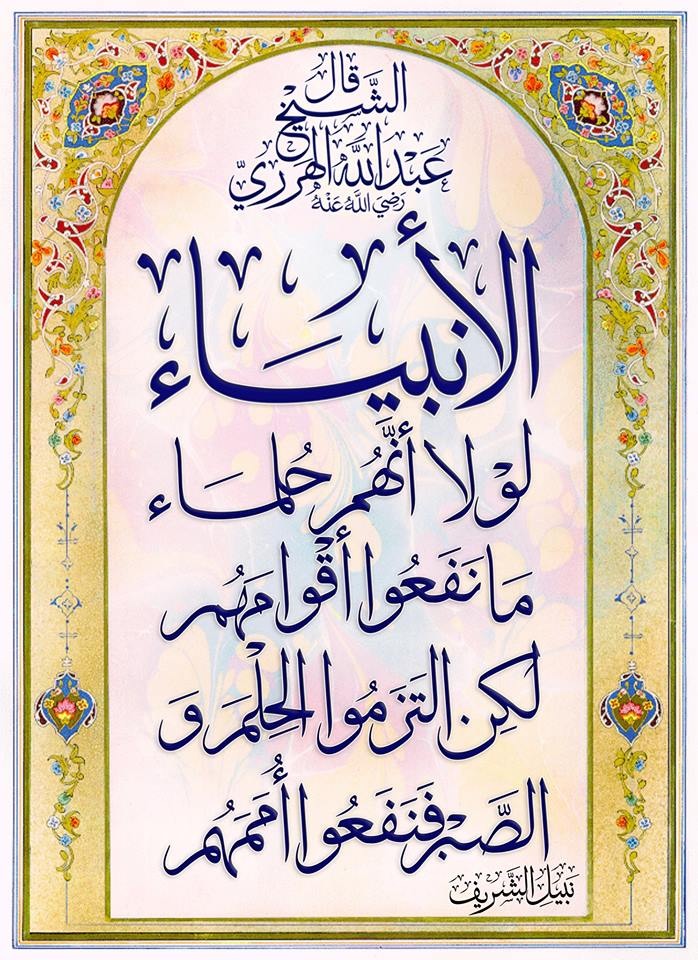 قال
الشَّيخ
عَبْدُ اللَّه الهَرَرِيّ
رَضِيَ اللَّهُ عَنْهُ
الأنبيَاء
لَوْلا أنَّهُم حُلمَاء
مَا نَفَعُوا أقْوامَهُم
لَكِن التَزَمُوا الحِلْمَ وَ
الصَّبْرَ فَنَفَعُوا أُمَمَهُم
نبيل الشَّريف